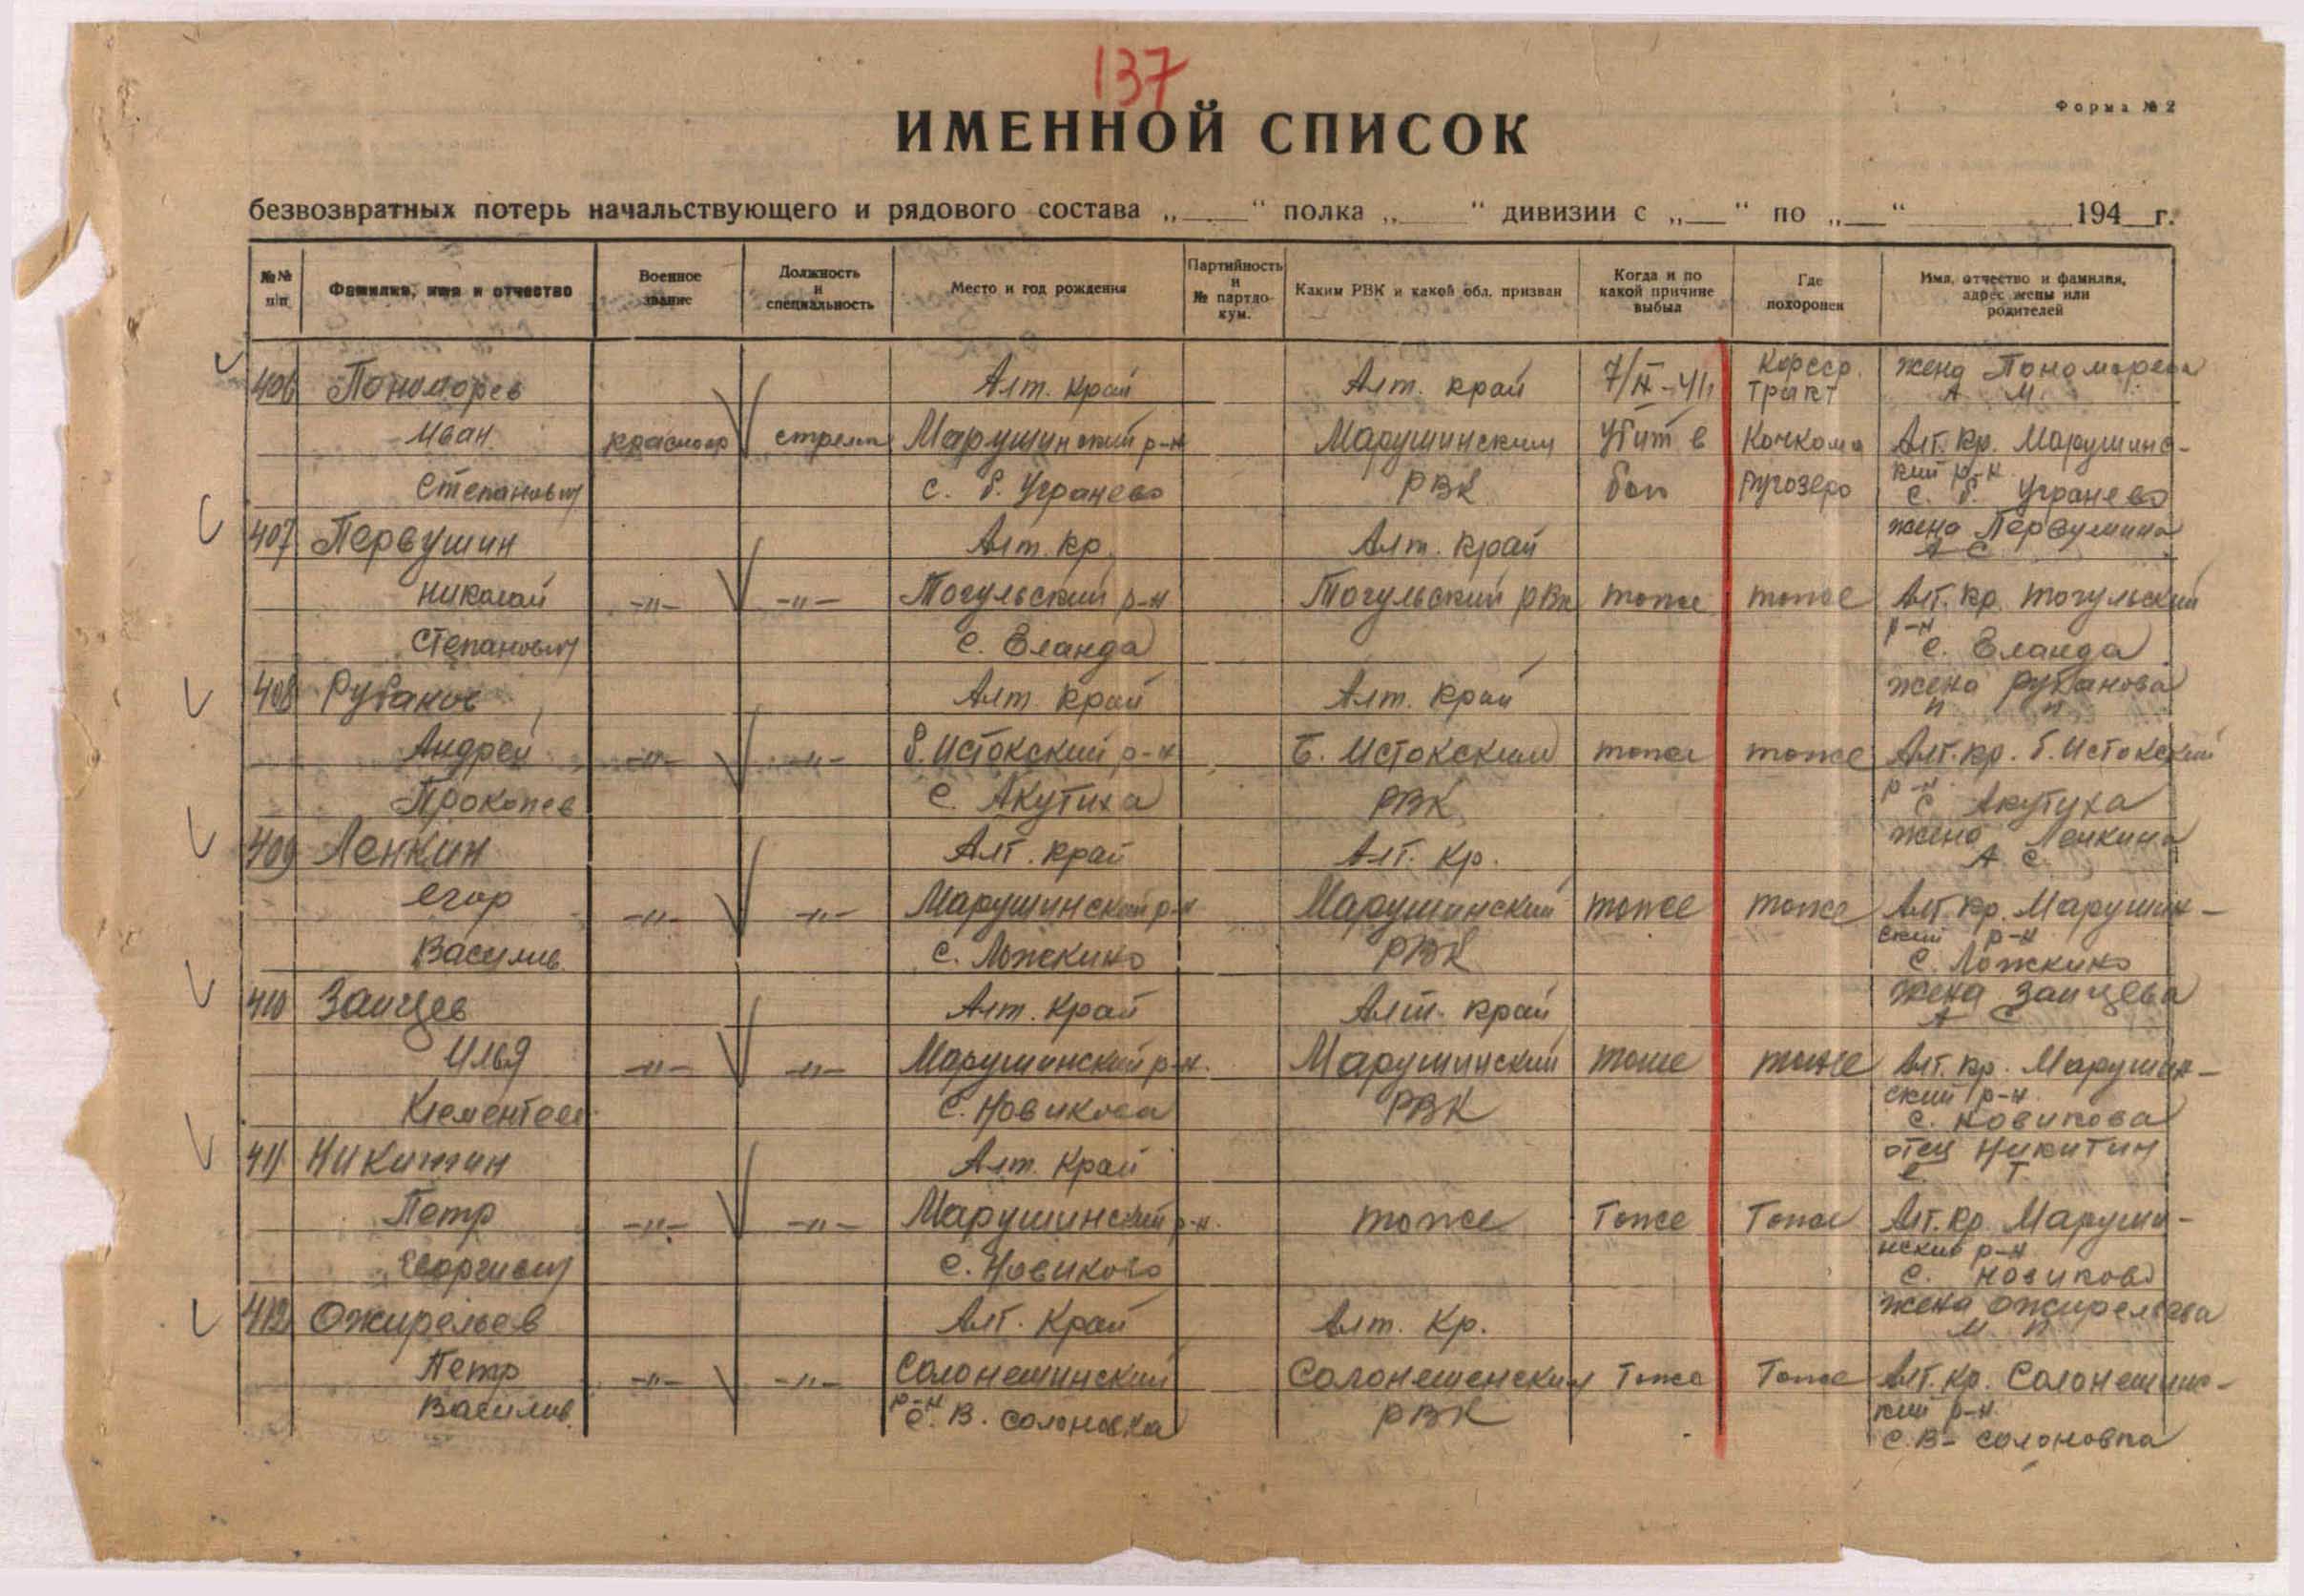 137
Форма № 2
ИМЕННОЙ СПИСОК
безвозвратных потерь начальствующего и рядового состава „____“ полка „____“ дивизии с „__“ по „__“ ________ 194__г.
№№ п/п
Фамилия, имя и отчество
Военное звание
Должность и специальность
Место и год рождения
Партийность и № партдокум.
Каким РВК и какой обл. призван
Когда и по какой причине выбыл
Где похоронен
Имя, отчество и фамилия, адрес жены или родителей
406 Пономорев Алт. край Алт. край 7/IX-41 Карсср. тракт жена Пономорева А М.
Иван красноар стрелок Марушинский р-н Марушинским Убит в Кочкома Алт. кр. Марушинс-
кий р-н
Степанович с. б. Угранево РВК бою Ругозеро с. б. Угранево
407 Первушин Алт. кр. Алт. край жена Первушина А С
Николай -"- -"- Тогульский р-н Тогульский РВК тоже тоже Алт. кр. Тогульский
р-н
Степанович с. Еланда с. Еланда
408 Рубанов Алт. край Алт. край жена Рубанова П П
Андрей -"- -"- б. Истокский р-н Б. Истокским тоже тоже Алт. кр. б. Истокский
р-н
Прокопев с. Акутиха РВК с Акутуха
409 Ленкин Алт. край Алт. кр. жена Ленкина А С.
Егор -"- -"- Марушинский р-н Марушинский тоже тоже Алт. кр. Марушин-
ский р-н
Василив. с. Ложкино РВК с. Ложкино
410 Зайцев Алт. край Алт. край жена Зайцева А С
Илья -"- -"- Марушинский р-н. Марушинский тоже тоже Алт. кр. Марушин-
ский р-н
Клементев с. Новикова РВК с. Новикова
411 Никитин Алт. край отец Никитин Е Т.
Петр -"- -"- Марушинский р-н. тоже Тоже Тоже Алт. кр. Маруши-
нский р-н
Георгиевич с. Новиково с. Новиково
412 Ожирельев Алт. край Алт. кр. жена Ожирельева М П
Петр -"- -"- Солонешинский Солонешенский Тоже Тоже Алт. кр. Солонешинс-
р-н кий р-н
Василив. с. В. Солоновка РВК с. В-Солоновка